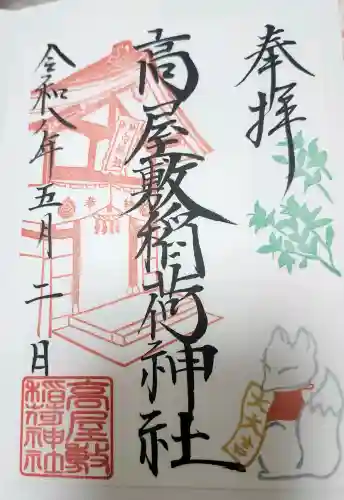 奉拝
高屋敷稲荷神社
令和八年五月二日
高屋敷
稲荷神社
大大吉